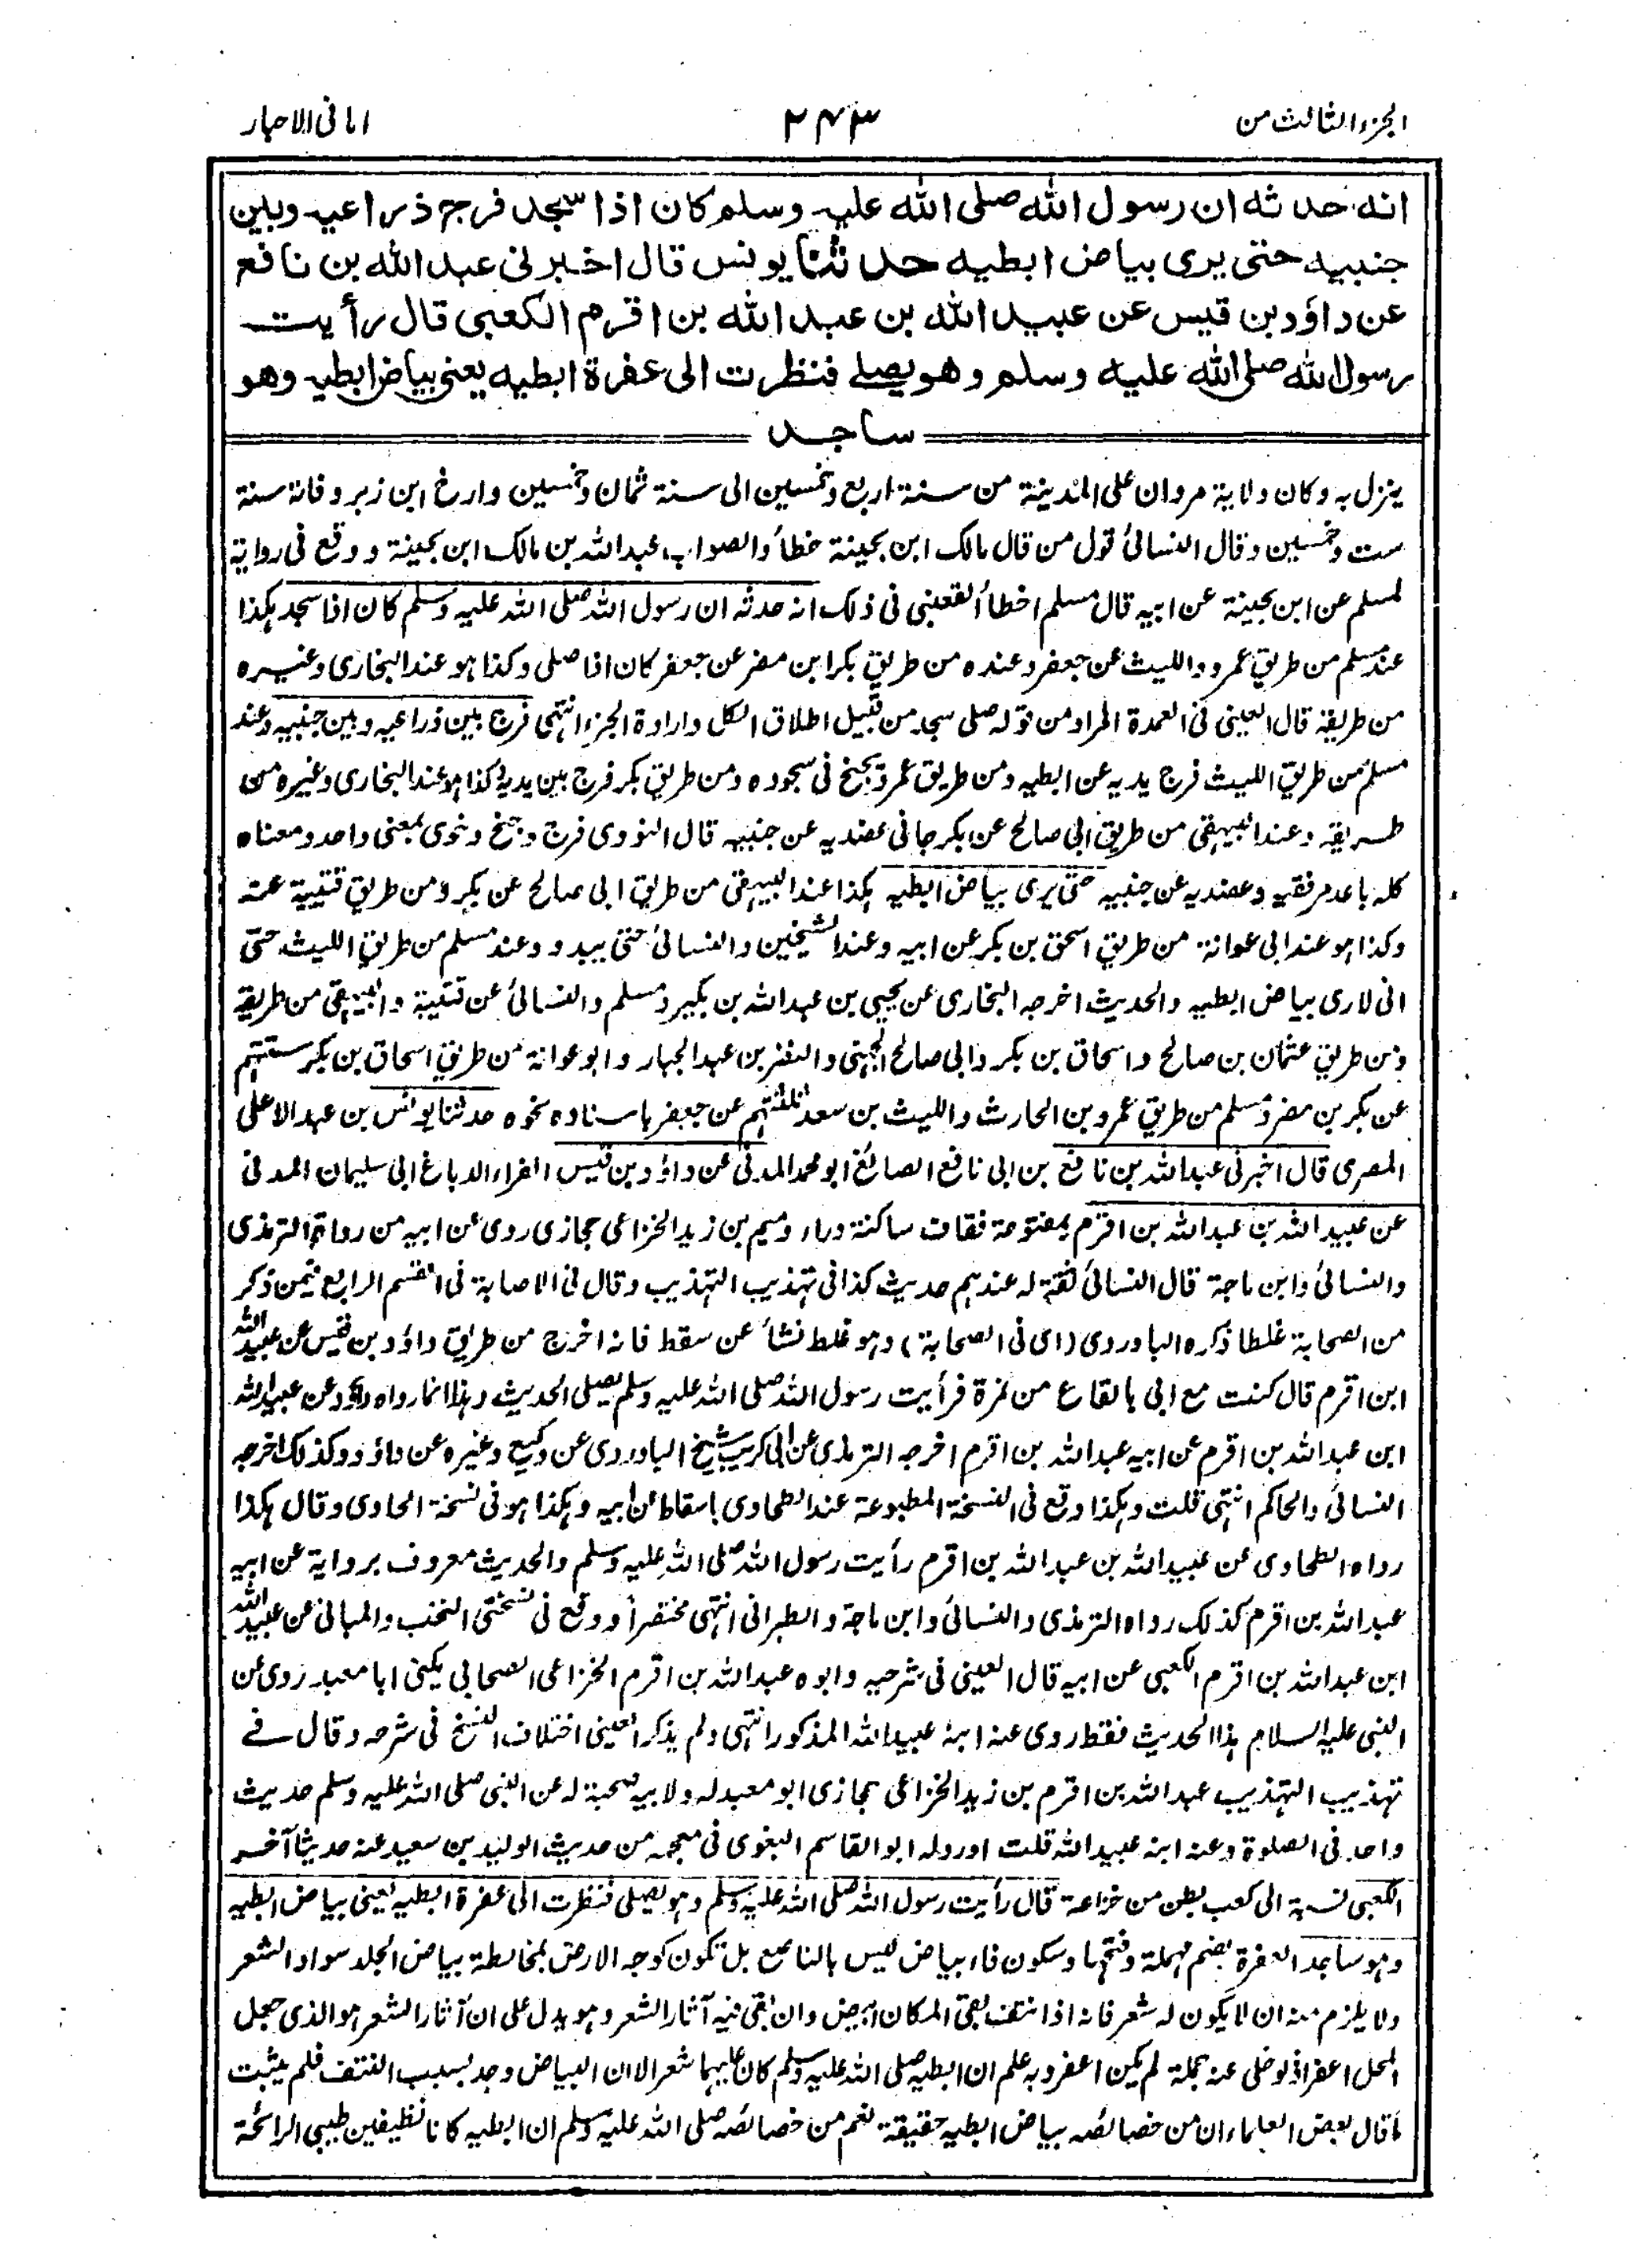 الجزء الثالث من
٢٤٣
امانى الاحبار
انه حدثه ان رسول الله صلى الله عليه وسلم كان اذا سجد فرج ذراعيه وبين
جنبيه حتى يرى بياض ابطيه حدثنا يونس قال اخبرنى عبد الله بن نافع
عن داؤد بن قيس عن عبيد الله بن عبد الله بن اقرم الكعبى قال رأيت
رسول الله صلى الله عليه وسلم وهو يصلے فنظرت الى عفرة ابطيه يعنى بياض ابطيه وهو
ساجد
ينزل به وكان ولاية مروان على المدينة من سنة اربع وخمسين الى سنة ثمان وخمسين وارخ ابن زبر وفاته سنة
ست وخمسين وقال النسائى قول من قال مالك ابن بحينة خطأ والصواب عبد الله بن مالك ابن بحينة ووقع فى رواية
لمسلم عن ابن بحينة عن ابيه قال مسلم اخطأ القعنبى فى ذلك انه حدثه ان رسول الله صلى الله عليه وسلم كان اذا سجد هكذا
عند مسلم من طريق عمرو والليث عن جعفر وعنده من طريق بكر ابن مضر عن جعفر كان اذا صلى وكذا هو عند البخارى وغيره
من طريقه قال العينى فى العمدة المراد من قوله صلى سجد من قبيل اطلاق الكل وارادة الجزء انتهى فرج بين ذراعيه وبين جنبيه وعند
مسلم من طريق الليث فرج يديه عن ابطيه ومن طريق عمرو يجنح فى سجوده ومن طريق بكر فرج بين يديه كذا هو عند البخارى وغيره من
طريقه وعند البيهقى من طريق ابى صالح عن بكر جافى عضديه عن جنبيه قال النووى فرج وجنح وخوى بمعنى واحد ومعناه
كله باعد مرفقيه وعضديه عن جنبيه حتى يرى بياض ابطيه هكذا عند البيهقى من طريق ابى صالح عن بكر ومن طريق قتيبة عنه
وكذا هو عند ابى عوانة من طريق اسحق بن بكر عن ابيه وعند الشيخين والنسائى حتى يبدو وعند مسلم من طريق الليث حتى
انى لارى بياض ابطيه والحديث اخرجه البخارى عن يحيى بن عبد الله بن بكير ومسلم والنسائى عن قتيبة والبيهقى من طريقه
ومن طريق عثمان بن صالح واسحاق بن بكر وابى صالح الجهنى والنضر بن عبد الجبار وابو عوانة من طريق اسحاق بن بكر ستتهم
عن بكر بن مضر ومسلم من طريق عمرو بن الحارث والليث بن سعد ثلثتهم عن جعفر باسناده نحوه حدثنا يونس بن عبد الاعلى
المصرى قال اخبرنى عبد الله بن نافع بن ابى نافع الصائغ ابو محمد المدنى عن داؤد بن قيس الفراء الدباغ ابى سليمان المدنى
عن عبيد الله بن عبد الله بن اقرم بمفتوحة فقاف ساكنة وراء وميم بن زيد الخزاعى حجازى روى عن ابيه من رواة الترمذى
والنسائى وابن ماجة قال النسائى ثقة له عندهم حديث كذا فى تهذيب التهذيب وقال فى الاصابة فى القسم الرابع فيمن ذكر
من الصحابة غلطا ذكره الباوردى (اى فى الصحابة) وهو غلط نشأ عن سقط فانه اخرج من طريق داؤد بن قيس عن عبيد الله
ابن اقرم قال كنت مع ابى بالقاع من نمرة فرأيت رسول الله صلى الله عليه وسلم يصلى الحديث وهذا انما رواه داؤد عن عبيد الله
ابن عبد الله بن اقرم عن ابيه عبد الله بن اقرم اخرجه الترمذى عن ابى كريب شيخ الباوردى عن وكيع وغيره عن داؤد وكذلك اخرجه
النسائى والحاكم انتهى قلت وهكذا وقع فى النسخة المطبوعة عند الطحاوى باسقاط عن ابيه وهكذا هو فى نسخة الحاوى وقال هكذا
رواه الطحاوى عن عبيد الله بن عبد الله بن اقرم رأيت رسول الله صلى الله عليه وسلم والحديث معروف برواية عن ابيه
عبد الله بن اقرم كذلك رواه الترمذى والنسائى وابن ماجة والطبرانى انتهى مختصرا ووقع فى نسختى النخب والمبانى عن عبيد الله
ابن عبد الله بن اقرم الكعبى عن ابيه قال العينى فى شرحيه وابوه عبد الله بن اقرم الخزاعى الصحابى يكنى ابا معبد روى عن
النبى عليه السلام هذا الحديث فقط روى عنه ابنه عبيد الله المذكور انتهى ولم يذكر العينى اختلاف النسخ فى شرحه وقال فے
تهذيب التهذيب عبد الله بن اقرم بن زيد الخزاعى حجازى ابو معبد له ولابيه صحبة له عن النبى صلى الله عليه وسلم حديث
واحد فى الصلوة وعنه ابنه عبيد الله قلت اورد له ابو القاسم البغوى فى معجمه من حديث الوليد بن سعيد عنه حديثا آخر
الكعبى نسبة الى كعب بطن من خزاعة قال رأيت رسول الله صلى الله عليه وسلم وهو يصلى فنظرت الى عفرة ابطيه يعنى بياض ابطيه
وهو ساجد العفرة بضم مهملة وفتحها وسكون فاء بياض ليس بالناصع بل تكون كوجه الارض بمخالطة بياض الجلد سواد الشعر
ولا يلزم منه ان لا يكون له شعر فانه اذا نتف بقى المكان ابيض وان بقى فيه آثار الشعر وهو يدل على ان آثار الشعر هو الذى جعل
المحل اعفر اذ لو خلى عنه جملة لم يكن اعفر وبه علم ان ابطيه صلى الله عليه وسلم كان عليهما شعر الا ان البياض وجد بسبب النتف فلم يثبت
ما قال بعض العلماء ان من خصائصه بياض ابطيه حقيقة نعم من خصائصه صلى الله عليه وسلم ان ابطيه كانا نظيفين طيبى الرائحة